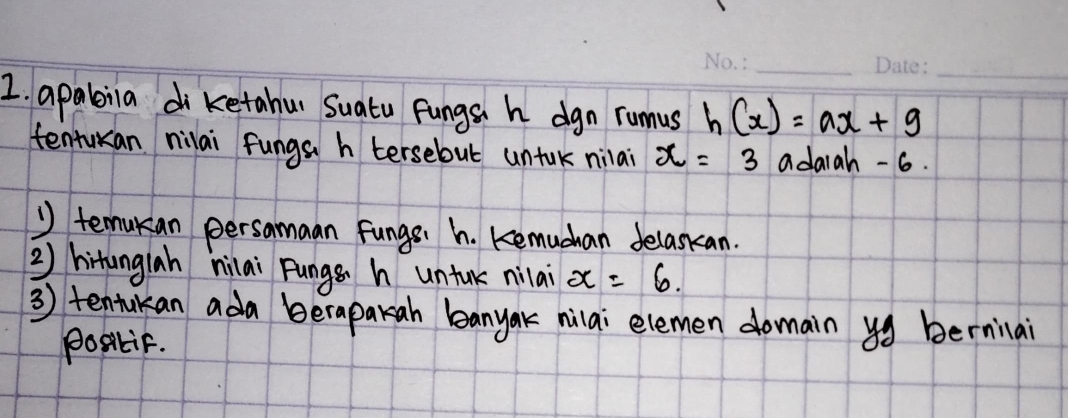 No.: Date:
1. apabila di ketahui suatu fungsi h dgn rumus h(x) = ax + 9
tentukan nilai fungsi h tersebut untuk nilai x = 3 adalah -6.
1) temukan persamaan fungsi h. kemudian jelaskan.
2) hitunglah nilai fungsi h untuk nilai x = 6.
3) tentukan ada berapakah banyak nilai elemen domain yg bernilai
positif.